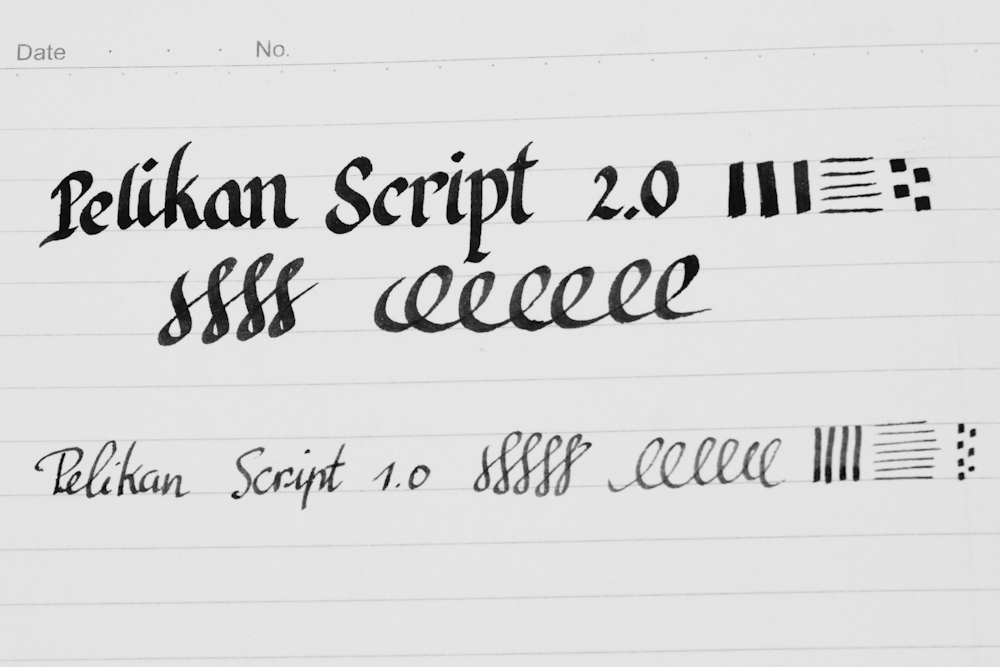 Date . . . No.
Pelikan Script 2.0
Pelikan Script 1.0